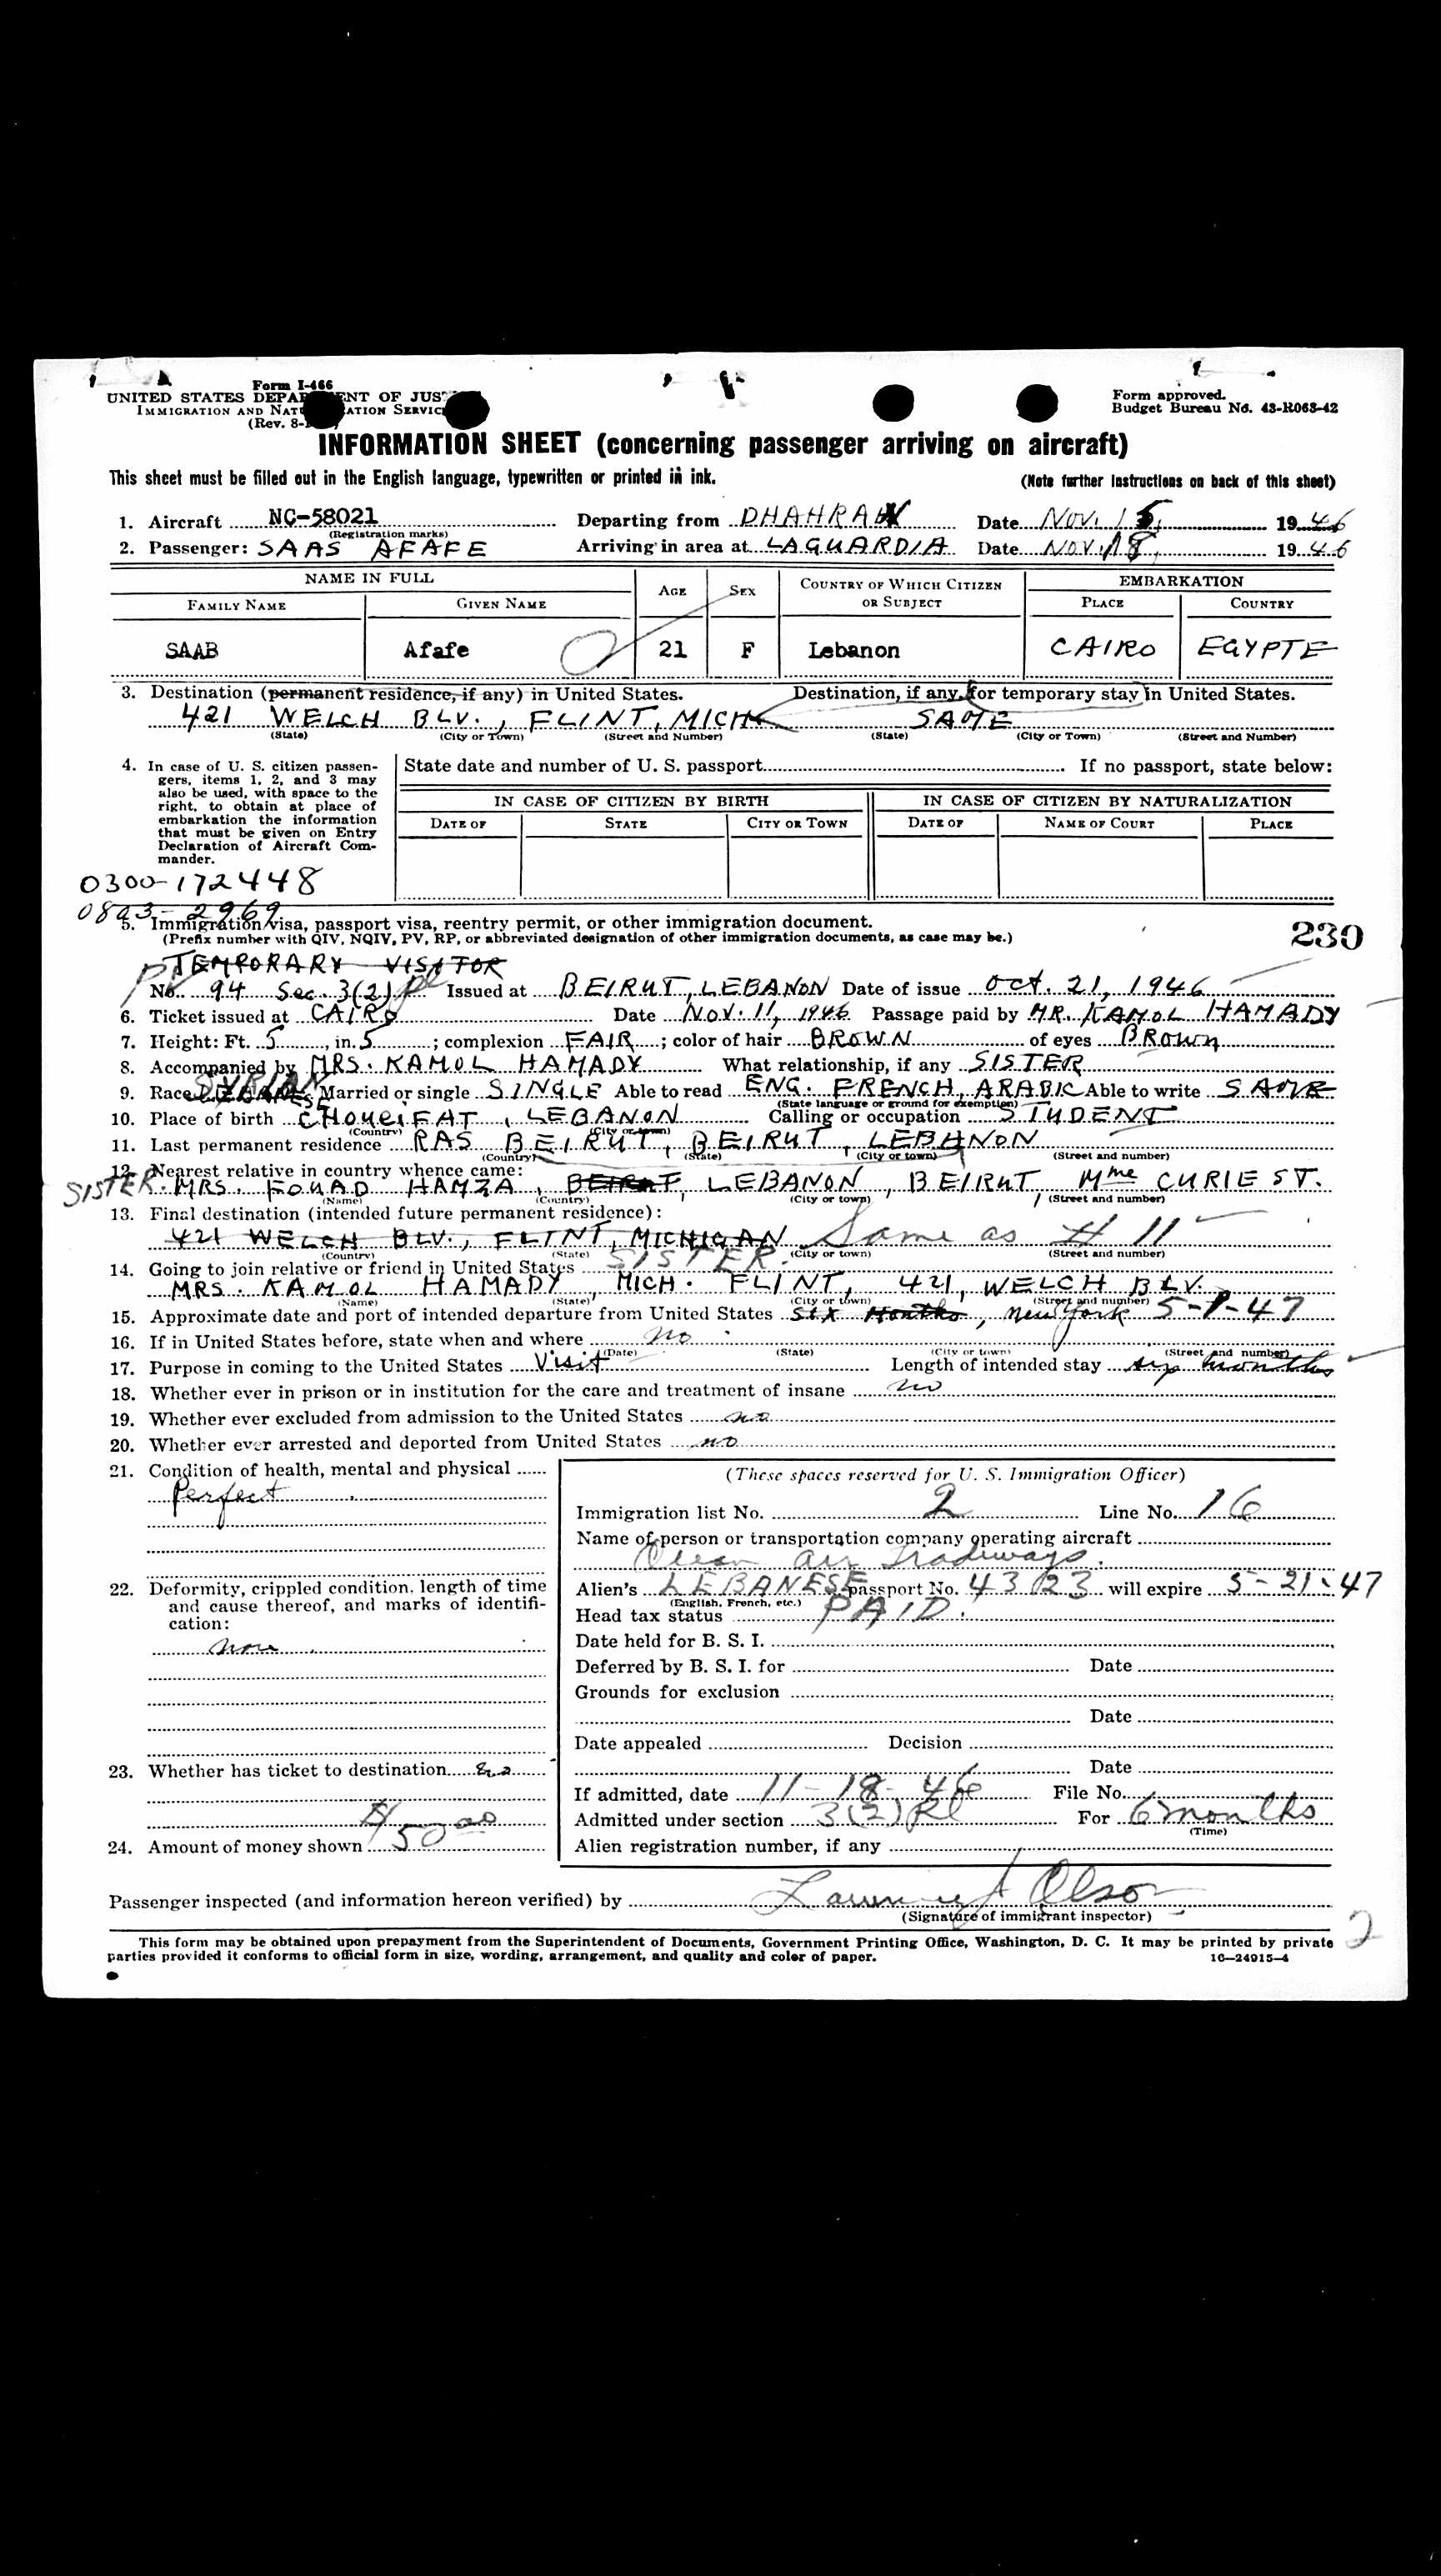 Form I-466
UNITED STATES DEPARTMENT OF JUSTICE
IMMIGRATION AND NATURALIZATION SERVICE
(Rev. 8-
Form approved.
Budget Bureau No. 43-R063-42
INFORMATION SHEET (concerning passenger arriving on aircraft)
This sheet must be filled out in the English language, typewritten or printed in ink.
(Note further instructions on back of this sheet)
1. Aircraft NC-58021 Departing from DHAHRAN Date NOV. 15, 1946
(Registration marks)
2. Passenger: SAAS AFAFE Arriving in area at LAGUARDIA Date NOV. 18, 1946
NAME IN FULL AGE SEX COUNTRY OF WHICH CITIZEN OR SUBJECT EMBARKATION
FAMILY NAME GIVEN NAME PLACE COUNTRY
SAAB Afafe 21 F Lebanon CAIRO EGYPTE
3. Destination (permanent residence, if any) in United States. Destination, if any, for temporary stay in United States.
421 WELCH BLV., FLINT, MICH SAME
(State) (City or Town) (Street and Number) (State) (City or Town) (Street and Number)
4. In case of U. S. citizen passen-
gers, items 1, 2, and 3 may
also be used, with space to the
right, to obtain at place of
embarkation the information
that must be given on Entry
Declaration of Aircraft Com-
mander.
State date and number of U. S. passport If no passport, state below:
IN CASE OF CITIZEN BY BIRTH IN CASE OF CITIZEN BY NATURALIZATION
DATE OF STATE CITY OR TOWN DATE OF NAME OF COURT PLACE
0300-172448
0823-2969
5. Immigration visa, passport visa, reentry permit, or other immigration document.
(Prefix number with QIV, NQIV, PV, RP, or abbreviated designation of other immigration documents, as case may be.)
230
TEMPORARY VISITOR
PV
No. 94 Sec. 3(2) Issued at BEIRUT, LEBANON Date of issue Oct. 21, 1946
6. Ticket issued at CAIRO Date NOV. 11, 1946 Passage paid by MR. KAMOL HAMADY
7. Height: Ft. 5, in. 5; complexion FAIR; color of hair BROWN of eyes BROWN
8. Accompanied by MRS. KAMOL HAMADY What relationship, if any SISTER
9. Race SYRIAN Married or single SINGLE Able to read ENG. FRENCH, ARABIC Able to write SAME
(State language or ground for exemption)
10. Place of birth CHOUEIFAT, LEBANON Calling or occupation STUDENT
(Country) (City or town)
11. Last permanent residence RAS BEIRUT, BEIRUT, LEBANON
(Country) (State) (City or town) (Street and number)
12. Nearest relative in country whence came:
SISTER. MRS. FOUAD HAMZA, BEIRUT, LEBANON, BEIRUT Mme CURIE ST.
(Name) (Country) (City or town) (Street and number)
13. Final destination (intended future permanent residence):
421 WELCH BLV., FLINT, MICHIGAN Same as # 11
(Country) (State) (City or town) (Street and number)
14. Going to join relative or friend in United States SISTER.
MRS. KAMOL HAMADY, MICH. FLINT, 421, WELCH BLV.
(Name) (State) (City or town) (Street and number)
15. Approximate date and port of intended departure from United States SIX Months, New York 5-8-47
16. If in United States before, state when and where no
(Date) (State) (City or town) (Street and number)
17. Purpose in coming to the United States Visit Length of intended stay six months
18. Whether ever in prison or in institution for the care and treatment of insane no
19. Whether ever excluded from admission to the United States no
20. Whether ever arrested and deported from United States no
21. Condition of health, mental and physical
Perfect
22. Deformity, crippled condition, length of time
and cause thereof, and marks of identifi-
cation:
none
23. Whether has ticket to destination
24. Amount of money shown $50 00
(These spaces reserved for U. S. Immigration Officer)
Immigration list No. 2 Line No. 16
Name of person or transportation company operating aircraft
Ocean Air Tradeways.
Alien's LEBANESE passport No. 43123 will expire 5-21-47
(English, French, etc.)
Head tax status PAID.
Date held for B. S. I.
Deferred by B. S. I. for Date
Grounds for exclusion
Date
Date appealed Decision
Date
If admitted, date 11-18-46 File No.
Admitted under section 3(2) For 6 months
(Time)
Alien registration number, if any
Passenger inspected (and information hereon verified) by Olson
(Signature of immigrant inspector)
2
This form may be obtained upon prepayment from the Superintendent of Documents, Government Printing Office, Washington, D. C. It may be printed by private
parties provided it conforms to official form in size, wording, arrangement, and quality and color of paper.
16—24915-4